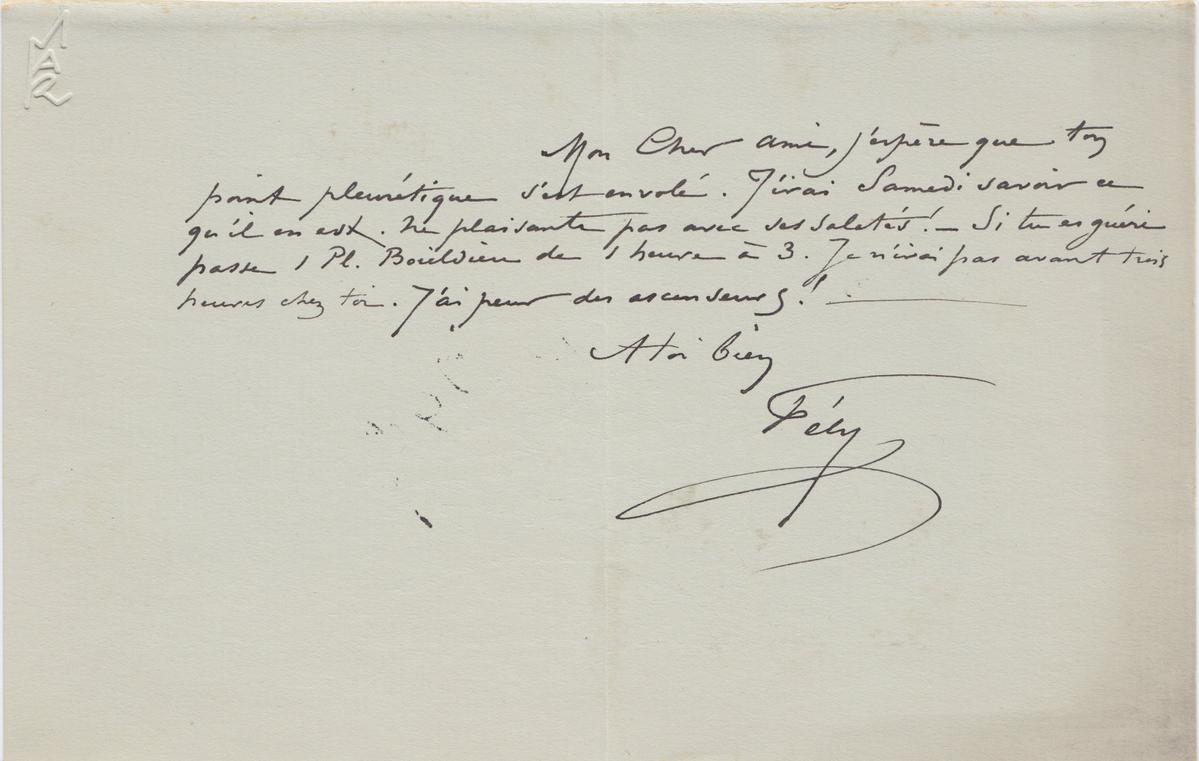 Mon Cher ami, j'espère que ton
point pleurétique s'est envolé. J'irai Samedi savoir ce
qu'il en est. Ne plaisante pas avec ses saletés! — Si tu es guéri
passe 1 Pl. Boieldieu de 1 heure à 3. Je n'irai pas avant trois
heures chez toi. J'ai peur des ascenseurs!
A toi bien
Fély